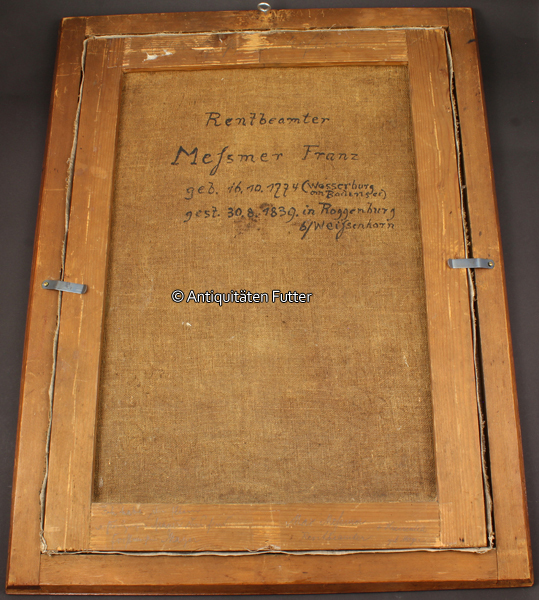 Rentbeamter
Meſsmer Franz
geb. 16.10.1774 (Wasserburg
am Bodensee)
gest. 30.8.1839. in Roggenburg
b/Weiſsenhorn
© Antiquitäten Futter